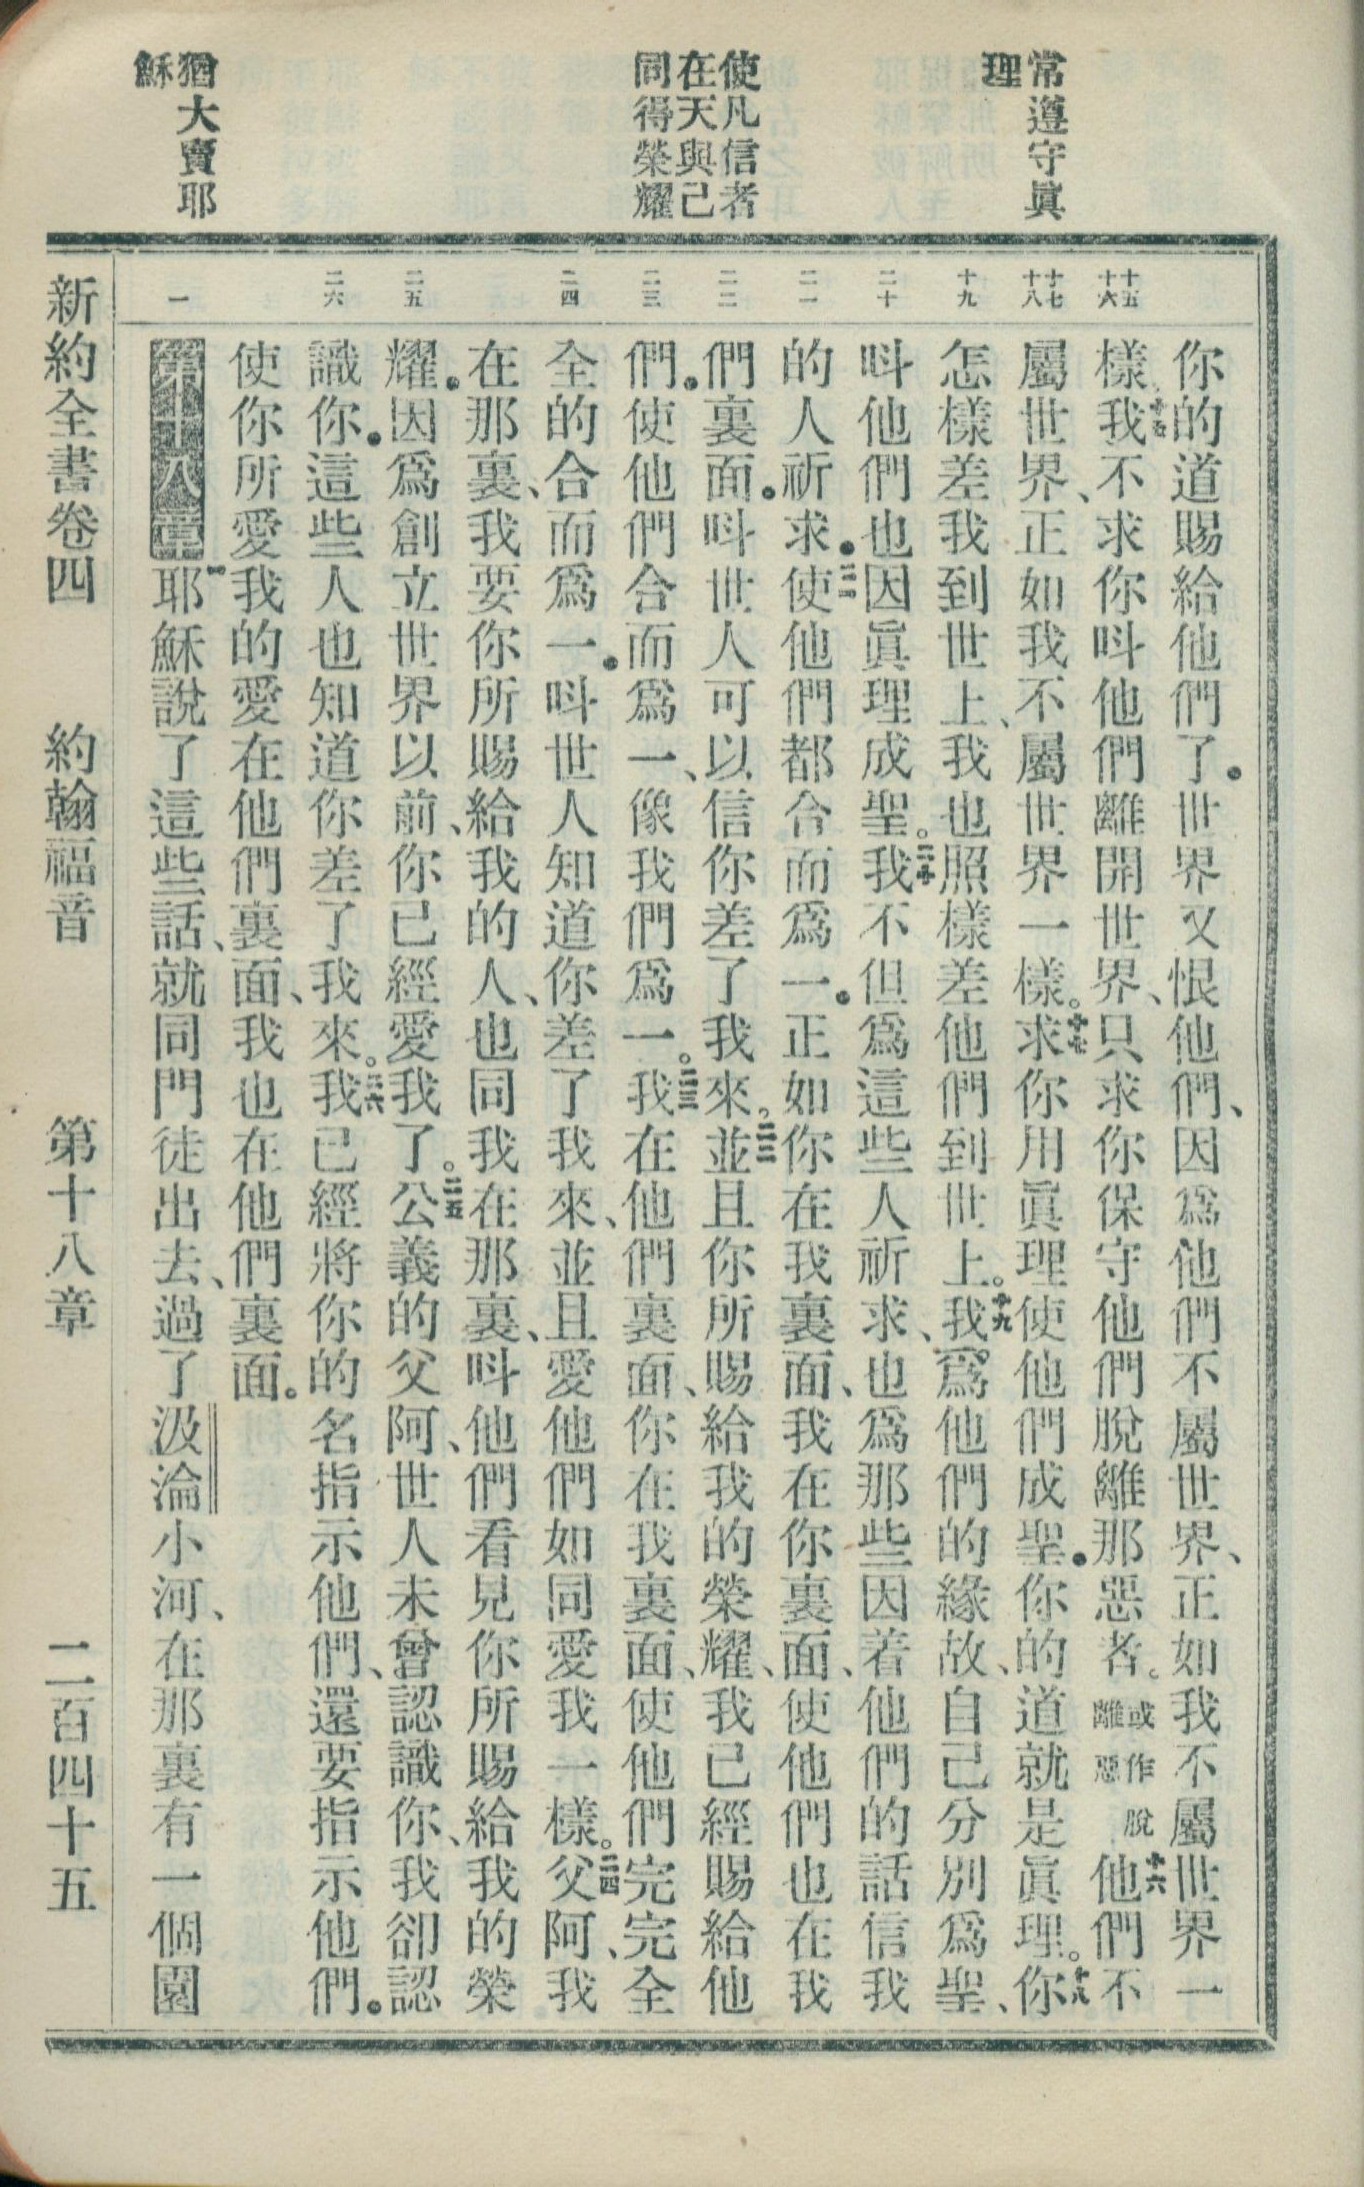 常遵守眞
理
使凡信者
在天與己
同得榮耀
猶大賣耶
穌
十五
十六
十七
十八
十九
二十
二一
二二
二三
二四
二五
二六
一
你的道賜給他們了。世界又恨他們、因爲他們不屬世界、正如我不屬世界一
樣。十五我不求你呌他們離開世界、只求你保守他們脫離那惡者。或作脫離惡十六他們不
屬世界、正如我不屬世界一樣。十七求你用眞理使他們成聖。你的道就是眞理。十八你
怎樣差我到世上、我也照樣差他們到世上。十九我爲他們的緣故、自己分別爲聖、
呌他們也因眞理成聖。二十我不但爲這些人祈求、也爲那些因着他們的話信我
的人祈求。二一使他們都合而爲一。正如你在我裏面、我在你裏面、使他們也在我
們裏面。呌世人可以信你差了我來。二二並且你所賜給我的榮耀、我已經賜給他
們。使他們合而爲一、像我們爲一。二三我在他們裏面、你在我裏面、使他們完完全
全的合而爲一。呌世人知道你差了我來、並且愛他們如同愛我一樣。二四父阿、我
在那裏、我要你所賜給我的人、也同我在那裏、呌他們看見你所賜給我的榮
耀。因爲創立世界以前、你已經愛我了。二五公義的父阿、世人未曾認識你、我卻認
識你。這些人也知道你差了我來。二六我已經將你的名指示他們、還要指示他們。
使你所愛我的愛在他們裏面、我也在他們裏面。
第十八章 一耶穌說了這些話、就同門徒出去、過了汲淪小河、在那裏有一個園
新約全書卷四 約翰福音 第十八章 二百四十五